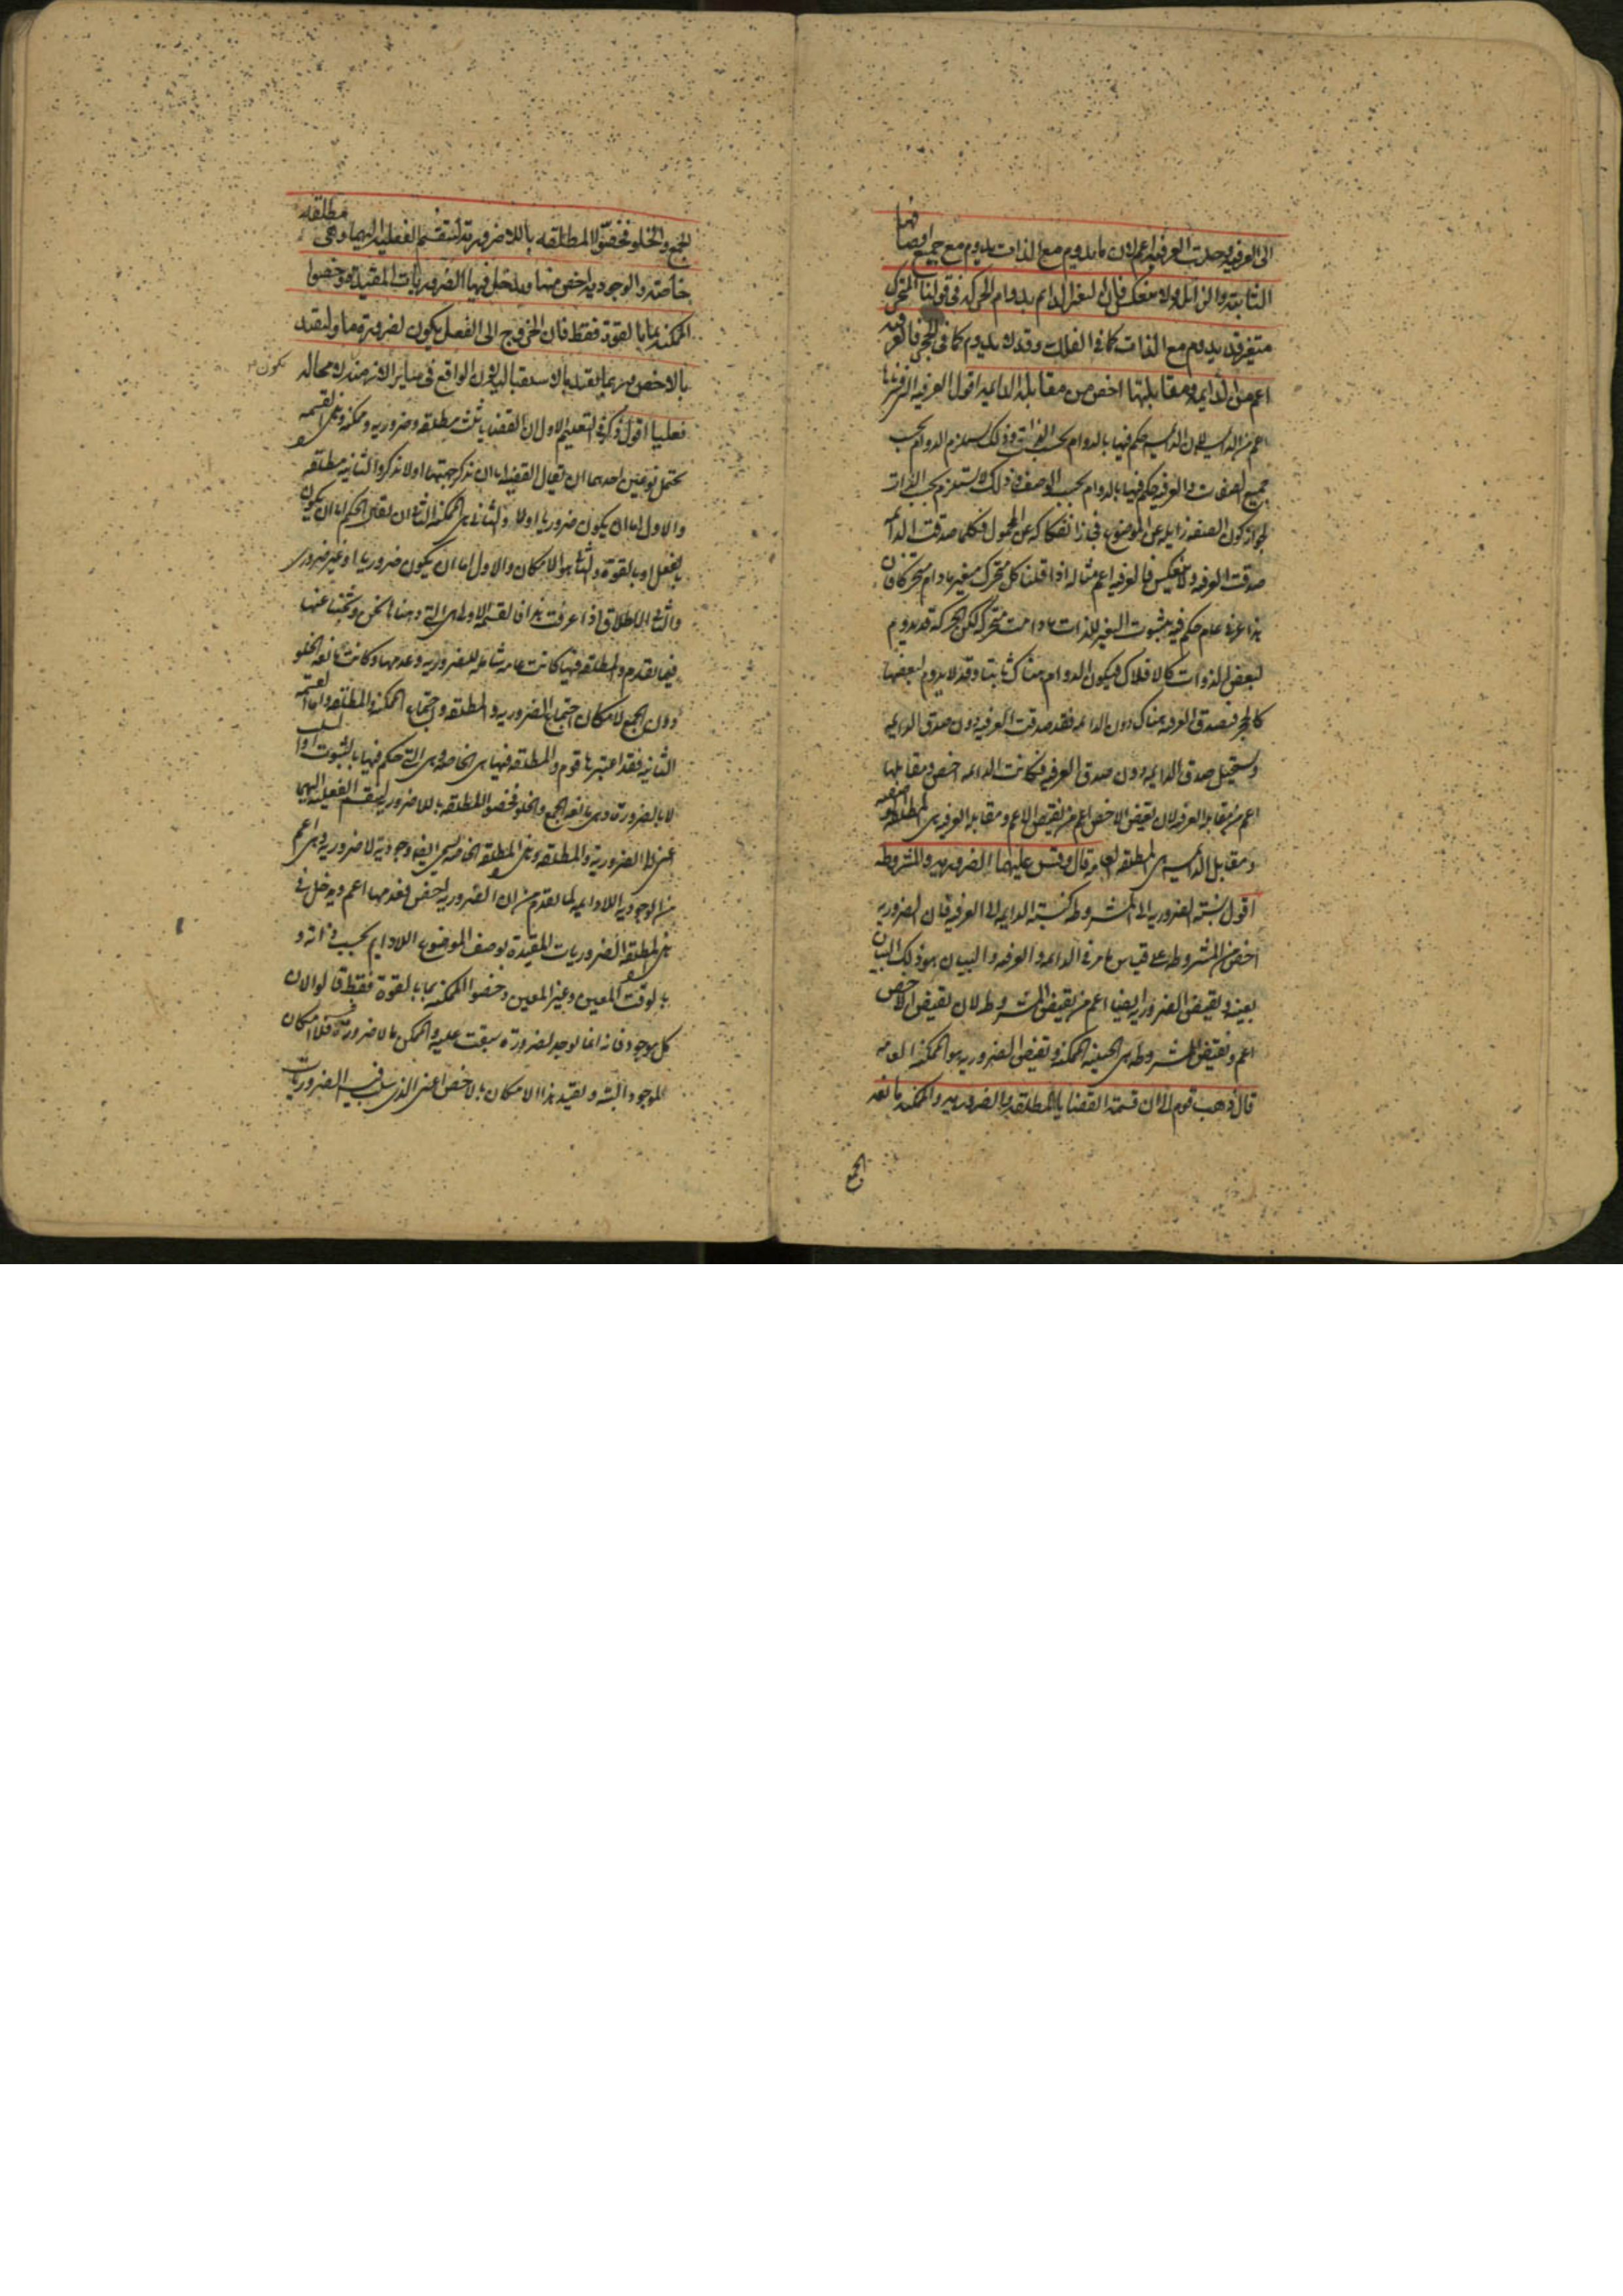 الى العرفيه وجدت العرفيه اعم لان ما يدوم مع الذات يدوم مع جميع اوصافها
الثابته والزائله ولا ينعكس فان التغير الدائم بدوام الحركه فى قولنا المتحرك
متغير قد يدوم مع الذات كما فى الفلك وقد لا يدوم كما فى الحجر فالعرفيه
اعم من الدايمه ومقابلتها اخص من مقابله الدايمه اقول العرفيه
اعم من الدايمه لان الدايمه حكم فيها بالدوام بحسب الذات وذلك يستلزم الدوام بحسب
جميع الصفات والعرفيه حكم فيها بالدوام بحسب الوصف وذلك لا يستلزم بحسب الذات
لجواز كون الصفه زايله عن الموضوع فجاز انفكاكه عن المحمول فكلما صدقت الدايمه
صدقت العرفيه ولا ينعكس فالعرفيه اعم مثاله اذا قلنا كل متحرك متغير ما دام متحركا فان
هذا عرفى عام حكم فيه بثبوت التغير للذات ما دامت متحركه لكن الحركه قد تدوم
لبعض الذوات كالافلاك فيكون الدوام هناك ثابتا وقد لا يدوم لبعضها
كالحجر فيصدق العرفيه هناك دون الدايمه فقد صدقت العرفيه دون صدق الدايمه
ويستحيل صدق الدايمه دون صدق العرفيه فكانت الدايمه اخص ومقابلها
اعم من مقابل العرفيه لان نقيض الاخص اعم من نقيض الاعم ومقابل العرفيه هى المطلقه الوصفيه
ومقابل الدايمه هى المطلقه العامه قال وقس عليهما الضروريه والمشروطه
اقول نسبة الضروريه الى المشروطه كنسبة الدايمه الى العرفيه فان الضروريه
اخص من المشروطه على قياس ما مر فى الدايمه والعرفيه والبيان هو ذلك البيان
بعينه ونقيض الضروريه ايضا اعم من نقيض المشروطه لان نقيض الاخص
اعم ونقيض المشروطه هى الحينيه الممكنه ونقيض الضروريه هو الممكنه العامه
قال ذهب قوم الى ان قسمة القضايا الى المطلقه والضروريه والممكنه مانعه
الجمع
الجمع والخلو فخصّوا المطلقه باللاضروريه لتنقسم الفعليه اليهما وهى مطلقه
خاصه والوجوديه اخص منها ويدخل فيها الضروريات المقيده وخصوا
الممكنه بما بالقوة فقط فان الخروج الى الفعل يكون لضرورة ما ولتقيد
بالاخص وربما يقيد بالاستقبالى لان الواقع فى ساير الازمنه لا محاله يكون
فعليا اقول ذكر فى التعليم الاول ان القضايا ثلث مطلقه وضروريه وممكنه وهذه القسمه
تحتمل نوعين احدهما ان يقال القضيه اما ان تذكر جهتها او لا تذكر والثانيه مطلقه
والاول اما ان يكون ضروريا او لا والثانى هى الممكنه الثانى ان يقال الحكم اما ان يكون
بالفعل او بالقوة والثانى هو الامكان والاول اما ان يكون ضروريا او غير ضرورى
والثانى الاطلاق اذا عرفت هذا فالقسمه الاولى هى التى ذهبنا نحن وبحثنا عنها
فيما تقدم والمطلقه فيها كانت عامه شامله للضروريه وعدمها وكانت مانعه الخلو
دون الجمع لامكان اجتماع الضروريه والمطلقه واجتماع الممكنه والمطلقه واما القسمه
الثانيه فقد اعتبرها قوم والمطلقه فيها هى الخاصه وهى التى حكم فيها بالثبوت او السلب
لا بالضرورة وهى مانعه الجمع والخلو فخصوا المطلقه باللاضروريه لينقسم الفعليه اليهما
اعنى الى الضروريه والمطلقه وهذه المطلقه الخاصه تسمى ايضا وجوديه لا ضروريه وهى اعم
من الوجوديه اللادايمه لما تقدم من ان الضروريه اخص فعدمها اعم ويدخل فى
هذه المطلقه الضروريات المقيدة بوصف الموضوع اللادايم بحسب ذاته و
بالوقت المعين وغير المعين وخصوا الممكنه بما بالقوة فقط قالوا لان
كل موجود فانه انما يوجد لضرورة سبقت عليه والممكن ما لا ضرورة فيه فلا امكان
للموجود البته وتقيد هذا الامكان بالاخص اعنى الذى سلب فيه الضروريات